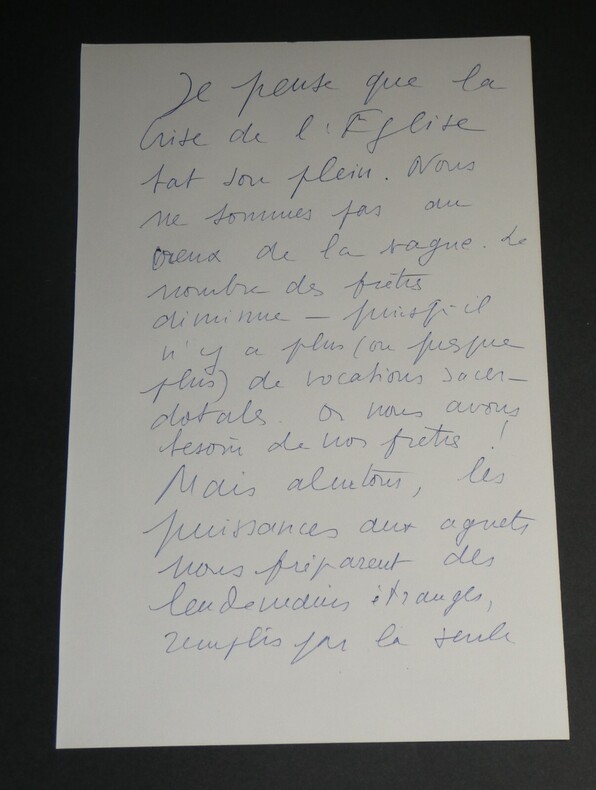 Je pense que la
Crise de l'Eglise
bat son plein. Nous
ne sommes pas au
creux de la vague. Le
nombre des prêtres
diminue — puisqu'il
n'y a plus (ou presque
plus) de vocations sacer-
dotales. Or nous avons
besoin de nos prêtres !
Mais alentour, les
puissances aux aguets
nous préparent des
lendemains étranges,
remplis par la seule